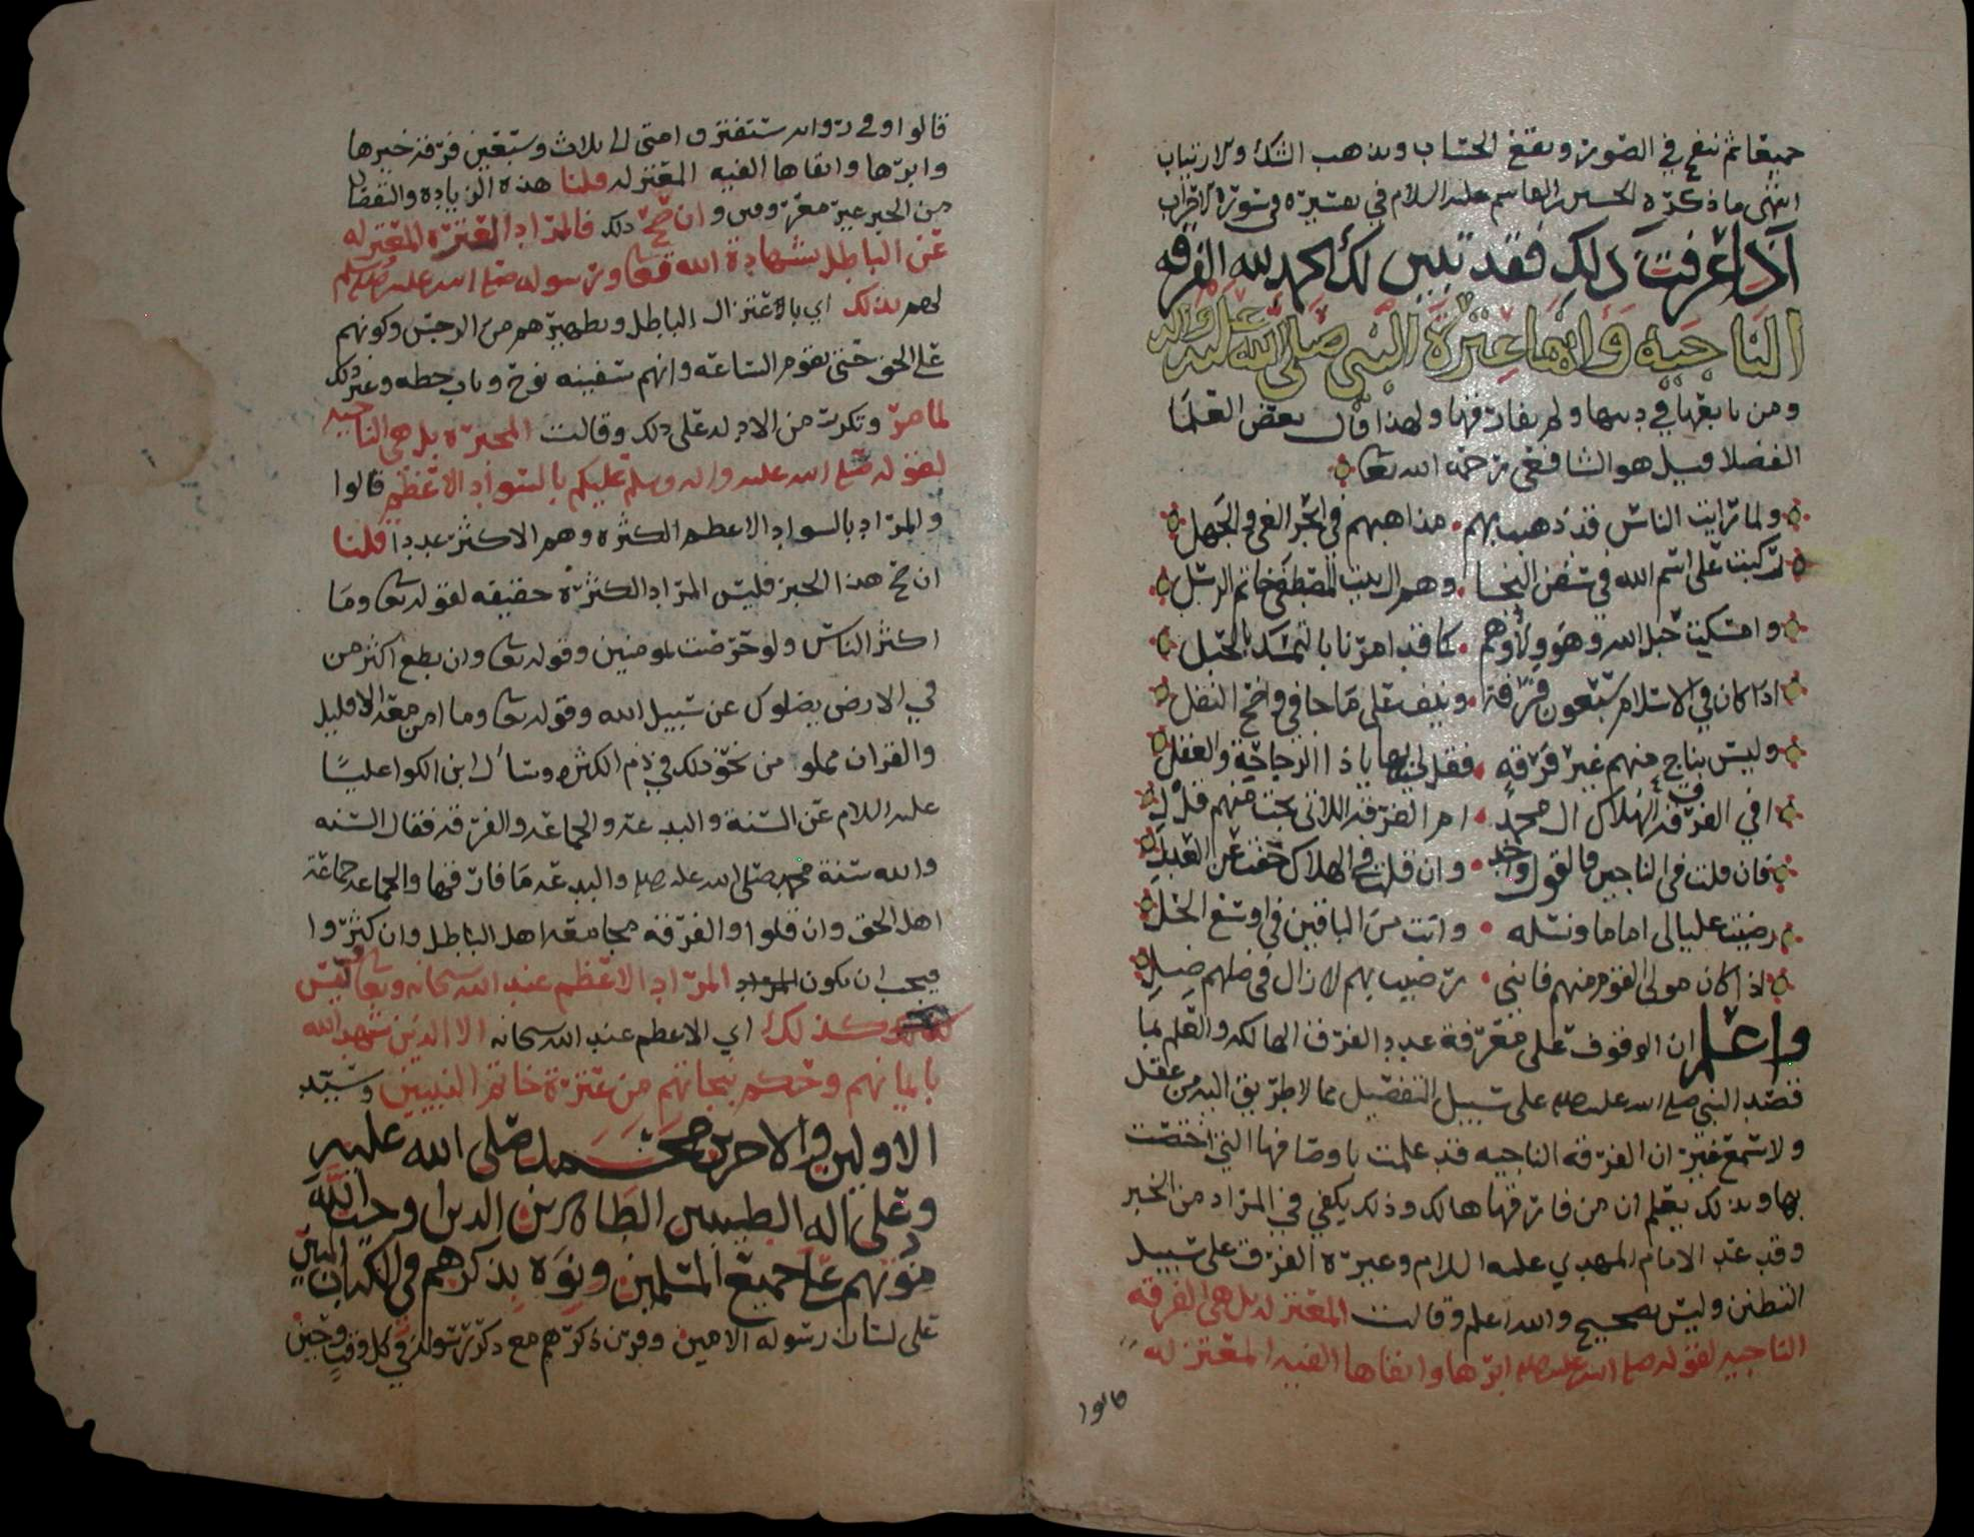 جميعا ثم ينفخ في الصور ويقع الحساب ويذهب الشك والارتياب
انتهى ما ذكره الحسين بن القاسم عليه السلام في تفسيره في سورة الاحزاب
اذا عرفت ذلك فقد تبين لك الحمد لله الفرقه
الناجيه وانها عترة النبي صلى الله عليه وعلى واله
ومن تابعها في دينها ولم يفارقها ولهذا قال بعض العلما
الفضلا قيل هو الشافعي رحمه الله تعالى
ولما رايت الناس قد ذهبت بهم مذاهبهم في ابحر الغي والجهل
ركبت على اسم الله في سفن النجا وهم ال بيت المصطفى خاتم الرسل
وامسكت حبل الله وهو ولاؤهم كما قد امرنا بالتمسك بالحبل
اذا كان في الاسلام سبعون فرقة ونيف على ما جا في واضح النقل
وليس بناج منهم غير فرقه فقل لي بها يا ذا الرجاحة والعقل
افي الفرقة الهلاك ال محمد ام الفرقه اللاتي نجت منهم قل لي
فان قلت في الناجين فالقول واحد وان قلت في الهلاك حفت عن العدل
رضيت عليا لي اماما ونسله وانت من الباقين في اوسع الحل
اذا كان مولى القوم منهم فانني رضيت بهم لا زال في ظلهم ظلي
واعلم ان الوقوف على معرفة عدد الفرق الهالكه والعلم بما
قصد النبي صلى الله عليه وسلم على سبيل التفصيل مما لا طريق اليه من عقل
ولا سمع غير ان الفرقه الناجيه قد علمت باوصافها التي اختصت
بها وبذلك يعلم ان من فارقها هالك وذلك يكفي في المراد من الخبر
وقد عد الامام المهدي عليه السلام وغيره الفرق على سبيل
التظنن وليس بصحيح والله اعلم وقالت المعتزله بل هي الفرقه
الناجيه لقوله صلى الله عليه وسلم ابرها واتقاها الفيه المعتزله
قالوا
قالوا وفي روايه ستفترق امتي الى ثلاث وسبعين فرقه خيرها
وابرها واتقاها الفيه المعتزله قلنا هذه الزياده والنقصان
من الخبر غير معروفين وان صح ذلك فالمراد العترة المعتزله
عن الباطل بشهادة الله تعالى ورسوله صلى الله عليه وسلم
لهم بذلك اي بالاعتزال الباطل وتطهيرهم من الرجس وكونهم
على الحق حتى تقوم الساعه وانهم سفينه نوح وباب حطه وغير ذلك
لما مر وتكرر من الادله على ذلك وقالت المجبره بل هي الناجيه
لقوله صلى الله عليه واله وسلم عليكم بالسواد الاعظم قالوا
والمراد بالسواد الاعظم الكثره وهم الاكثر عددا قلنا
ان صح هذا الخبر فليس المراد الكثرة حقيقه لقوله تعالى وما
اكثر الناس ولو حرصت بمومنين وقوله تعالى وان تطع اكثر من
في الارض يضلوك عن سبيل الله وقوله تعالى وما امن معه الا قليل
والقران مملو من نحو ذلك في ذم الكثره وسأل ابن الكوا عليا
عليه السلام عن السنة والبدعه والجماعه والفرقه فقال السنه
والله سنة محمد صلى الله عليه وسلم والبدعه ما فارقها والجماعه جماعة
اهل الحق وان قلوا والفرقه مجامعة اهل الباطل وان كثروا
فيجب ان يكون المراد الاعظم عند الله سبحانه وتعالى وليس
كذلك اي الاعظم عند الله سبحانه الا الذين شهد الله
بايمانهم وحكم بنجاتهم من عترة خاتم النبيين وسيد
الاولين والاخرين محمد صلى الله عليه
وعلى اله الطيبين الطاهرين الذين اوجب الله
مودتهم على جميع المسلمين ونوه بذكرهم في الكتاب المبين
على لسان رسوله الامين وقرن ذكرهم مع ذكر رسوله في كل وقت وحين